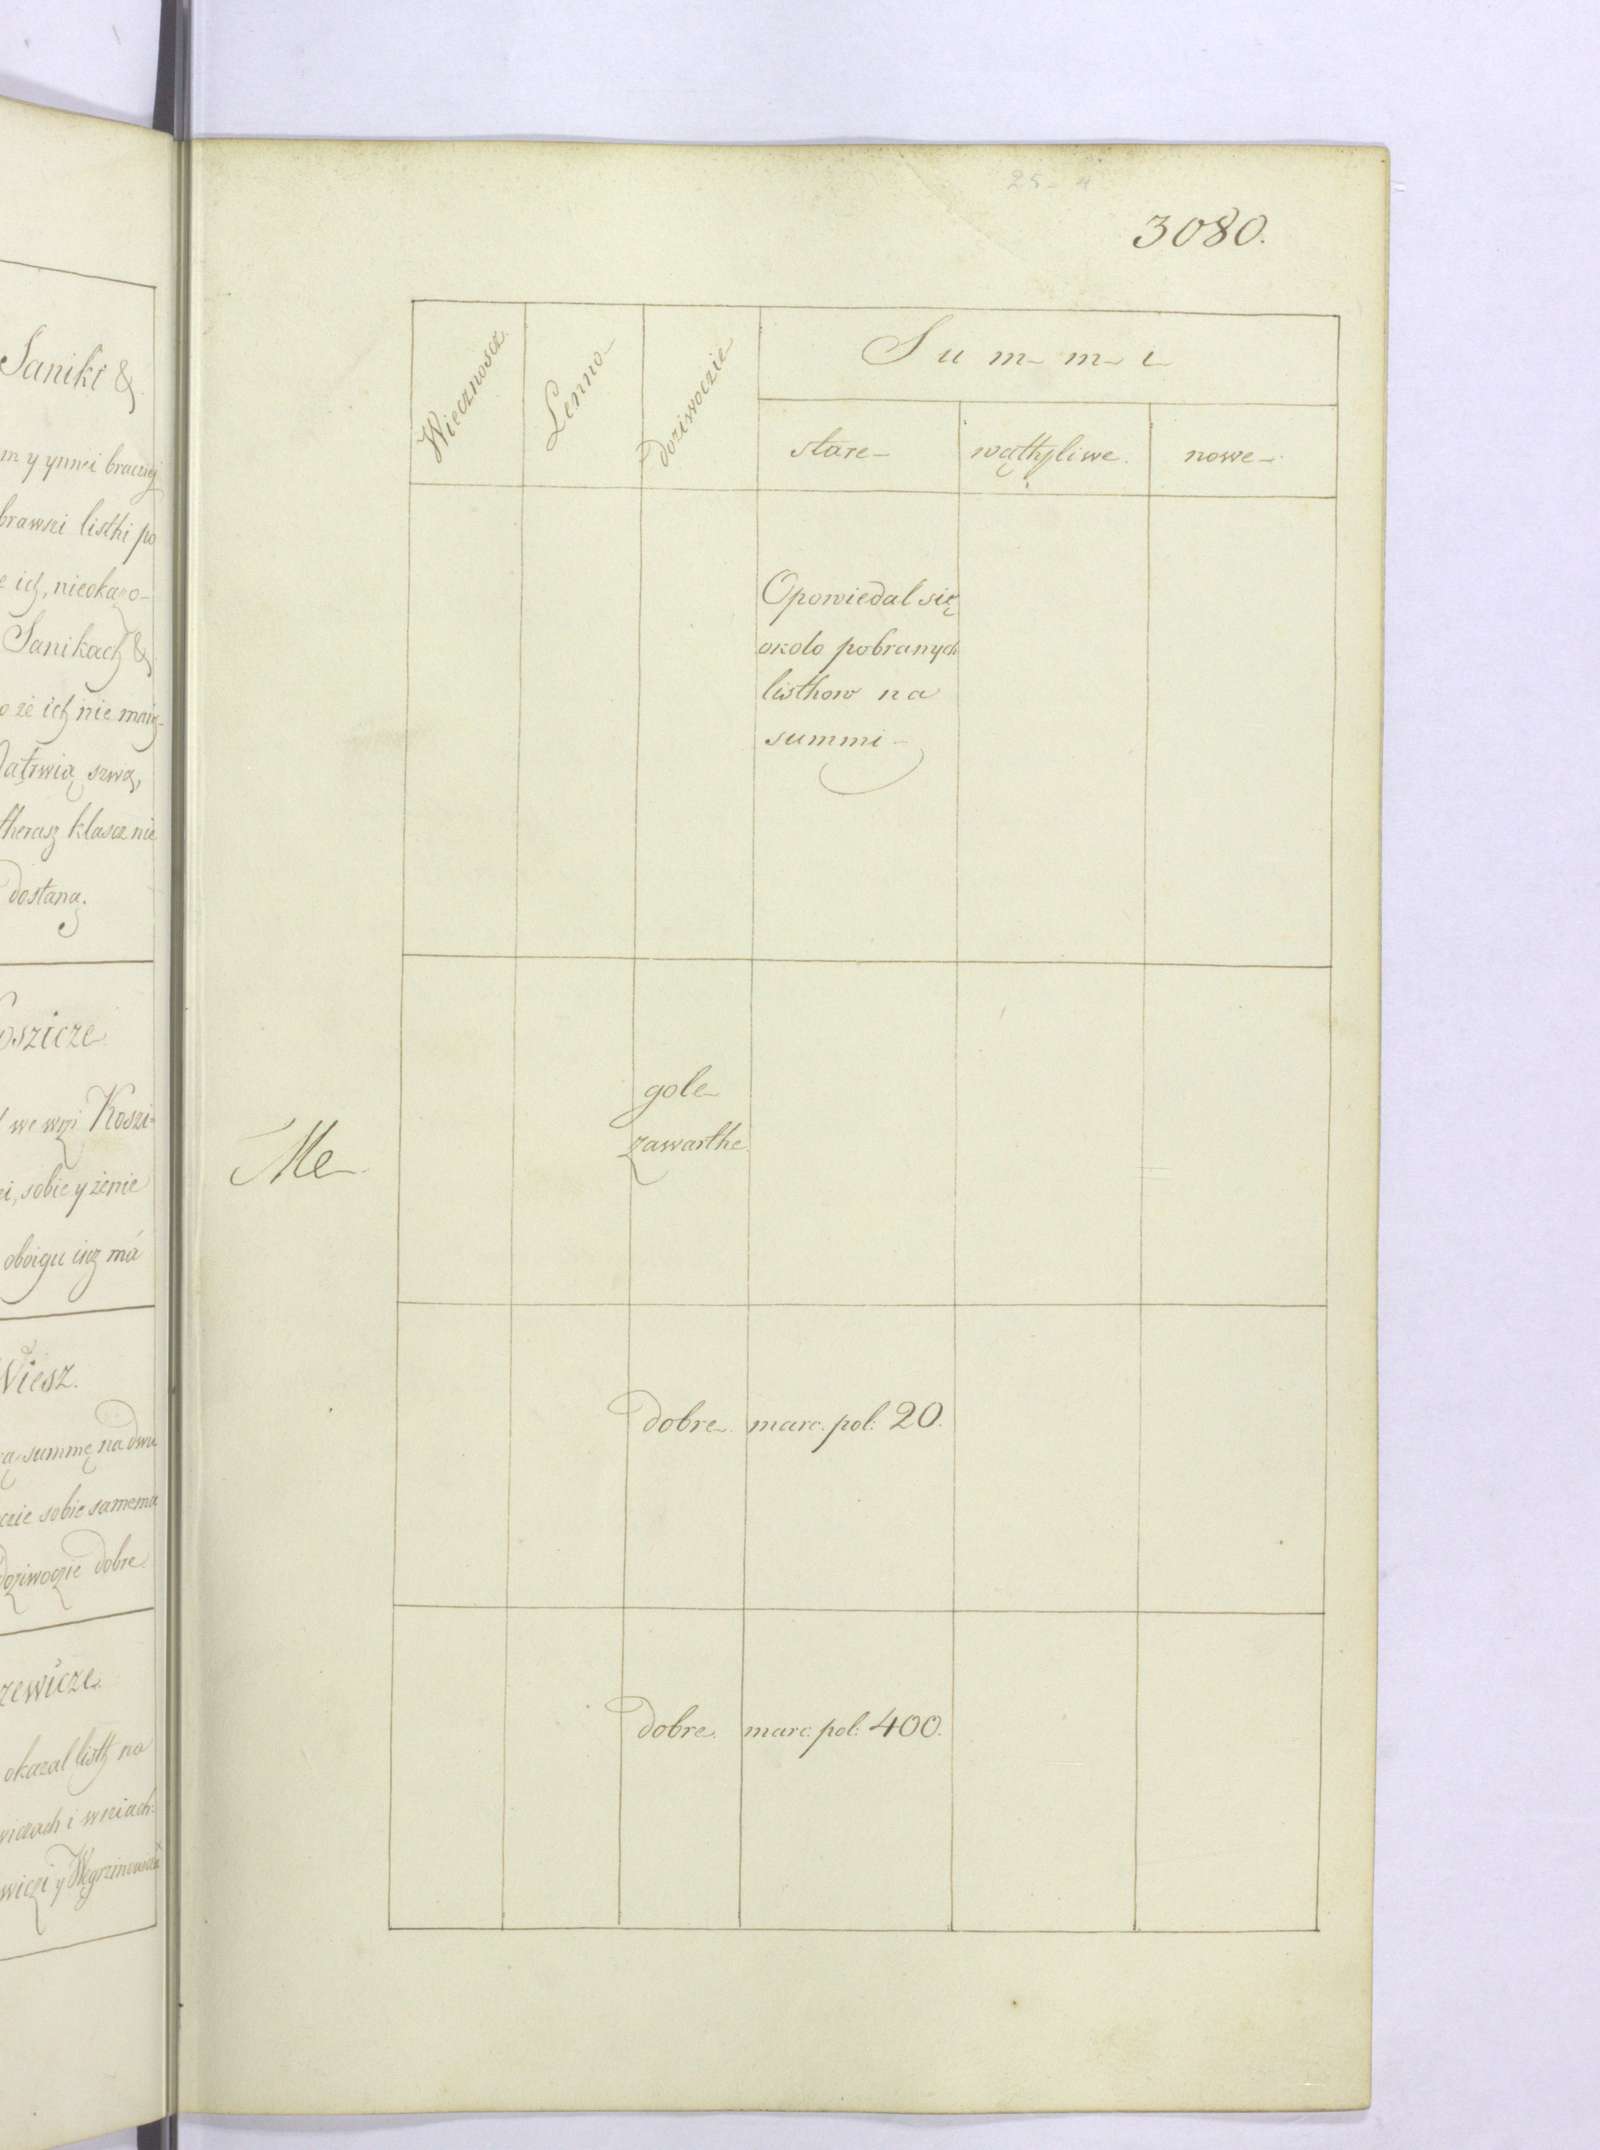 Saniki &
m y ynnei bracziej
brawszi listhi po
e ich, nieokazo-
Sanikach &
o że ich nie maią-
szwą,
therasz klascz nie
dostaną.
oszicze
we wszi Koszi-
ei, sobie y żenie
oboigu iusz má
Wiesz.
ą summę na dwu
czie sobie samemu
doziwoczie dobre
zewicze
okazal listh na
wiczach i wsziach
wiczi y Węgrzinowicze
25-4
3080.
Wiecznoscz
Lenno-
doziwoczie
Summi
stare- wąthpliwe. nowe-
Opowiedal się
około pobranych
listhow na
summi-
gole
zawarthe
Me
dobre marc. pol: 20.
dobre. marc. pol: 400.